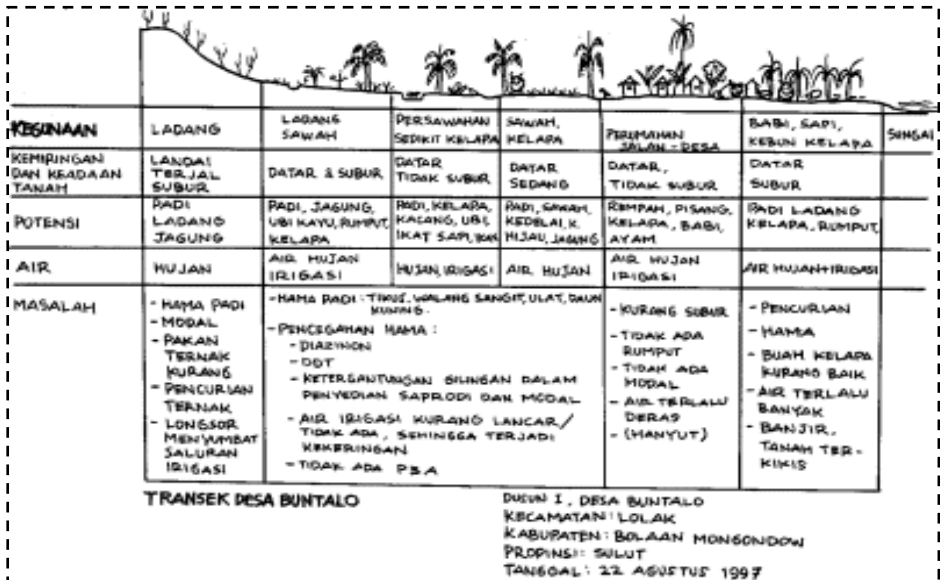 KEGUNAAN
LADANG
LADANG
SAWAH
PERSAWAHAN
SEDIKIT KELAPA
SAWAH,
KELAPA
PERUMAHAN
JALAN - DESA
BABI, SAPI,
KEBUN KELAPA
SUNGAI
KEMIRINGAN
DAN KEADAAN
TANAH
LANDAI
TERJAL
SUBUR
DATAR & SUBUR
DATAR
TIDAK SUBUR
DATAR
SEDANG
DATAR,
TIDAK SUBUR
DATAR
SUBUR
POTENSI
PADI
LADANG
JAGUNG
PADI, JAGUNG,
UBI KAYU, RUMPUT,
KELAPA
PADI, KELAPA,
KACANG, UBI,
IKAT SAPI, IKAN
PADI, SAWAH,
KEDELAI, K.
HIJAU, JAGUNG
REMPAH, PISANG,
KELAPA, BABI,
AYAM
PADI LADANG
KELAPA, RUMPUT,
AIR
HUJAN
AIR HUJAN
IRIGASI
HUJAN, IRIGASI
AIR HUJAN
AIR HUJAN
IRIGASI
AIR HUJAN+IRIGASI
MASALAH
- HAMA PADI
- MODAL
- PAKAN
TERNAK
KURANG
- PENCURIAN
TERNAK
- LONGSOR
MENYUMBAT
SALURAN
IRIGASI
- HAMA PADI: TIKUS, WALANG SANGIT, ULAT, DAUN
KUNING.
- PENCEGAHAN HAMA :
- DIAZINON
- DDT
- KETERGANTUNGAN GILINGAN DALAM
PENYEDIAN SAPRODI DAN MODAL
- AIR IRIGASI KURANG LANCAR/
TIDAK ADA, SEHINGGA TERJADI
KEKERINGAN
- TIDAK ADA P3A
- KURANG SUBUR
- TIDAK ADA
RUMPUT
- TIDAK ADA
MODAL
- AIR TERLALU
DERAS
- (HANYUT)
- PENCURIAN
- HAMA
- BUAH KELAPA
KURANG BAIK
- AIR TERLALU
BANYAK
- BANJIR,
TANAH TER-
KIKIS
TRANSEK DESA BUNTALO
DUSUN I, DESA BUNTALO
KECAMATAN: LOLAK
KABUPATEN: BOLAAN MONGONDOW
PROPINSI: SULUT
TANGGAL: 22 AGUSTUS 1997